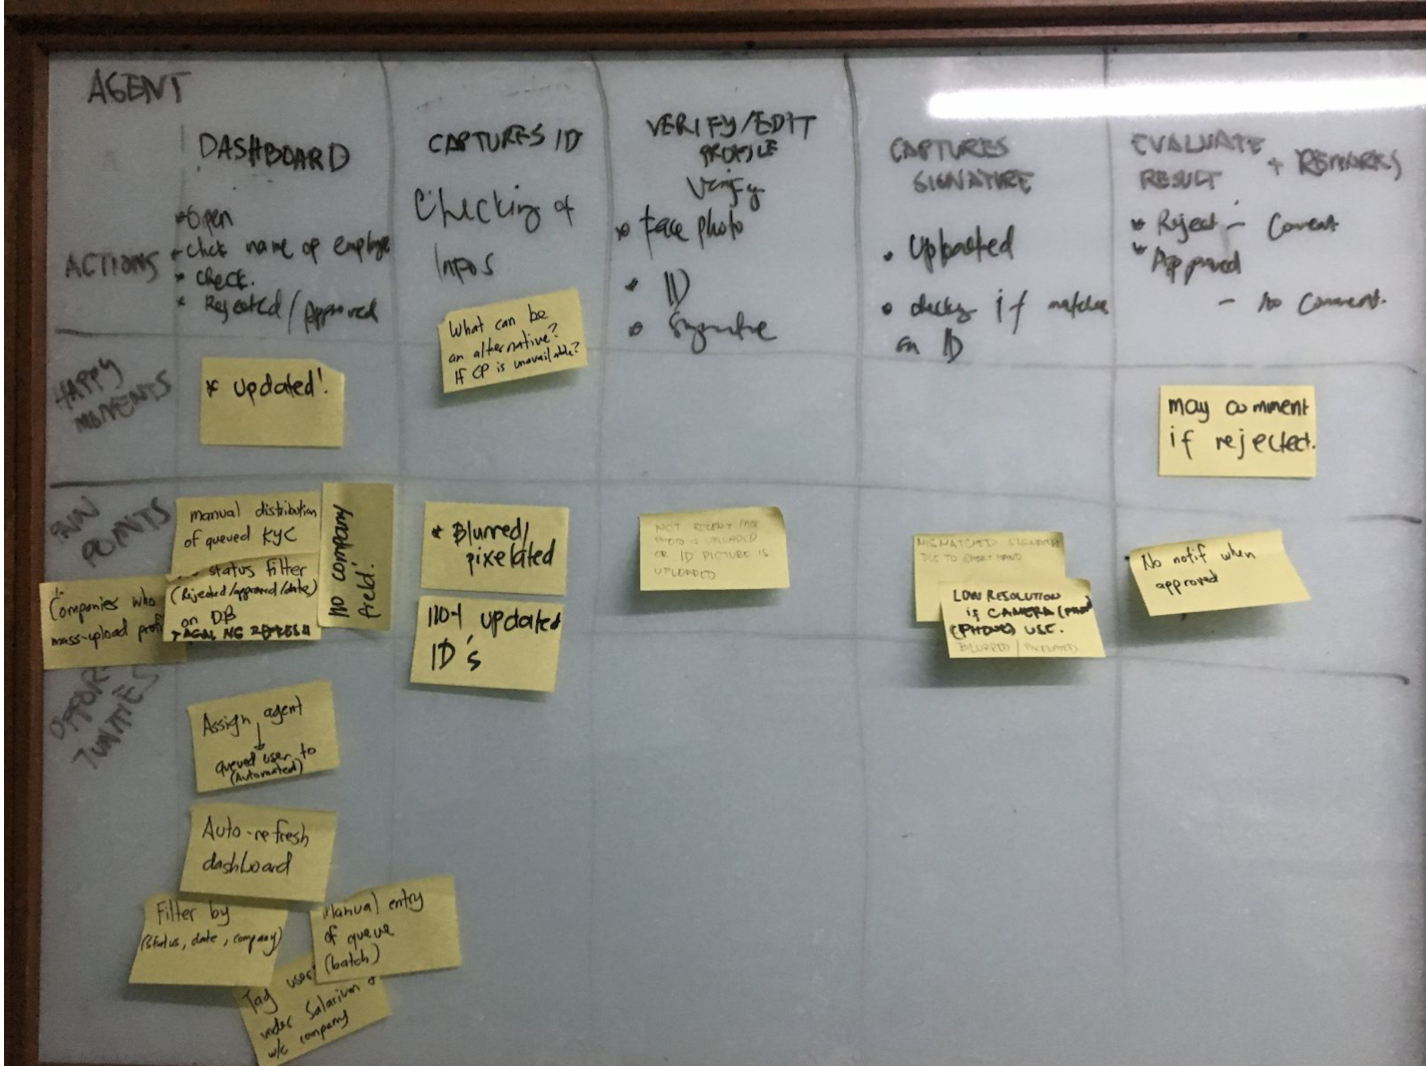 AGENT
DASHBOARD
CAPTURES ID
VERIFY/EDIT
PROFILE
CAPTURES
SIGNATURE
EVALUATE
RESULT
+ REMARKS
ACTIONS
* Open
* Click name of employee
* Check.
* Rejected/Approved
Checking of
Infos
What can be
an alternative?
If CP is unavailable?
Verify
* face photo
* ID
* Signature
• Uploaded
• checks if matches
on ID
* Reject - Comment
* Approved
- No Comment.
HAPPY
MOMENTS
* Updated!
may comment
if rejected.
PAIN
POINTS
manual distribution
of queued KYC
no company
field.
status filter
(Rejected/approved/date)
on DB
TAGAL NG REFRESH
Companies who
mass-upload
* Blurred/
pixelated
not updated
ID's
NOT RECENT
PHOTO IS UPLOADED
OR ID PICTURE IS
UPLOADED
MISMATCHED SIGNATURE
DUE TO
LOW RESOLUTION
IF CAMERA
(PHONE) USE.
BLURRED / PIXELATED
No notif when
approved
OPPOR
TUNITIES
Assign agent
↓
queued user to
(Automated)
Auto-refresh
dashboard
Filter by
(status, date, company)
Manual entry
of queue
(batch)
Tag user
under Salarium
w/c company